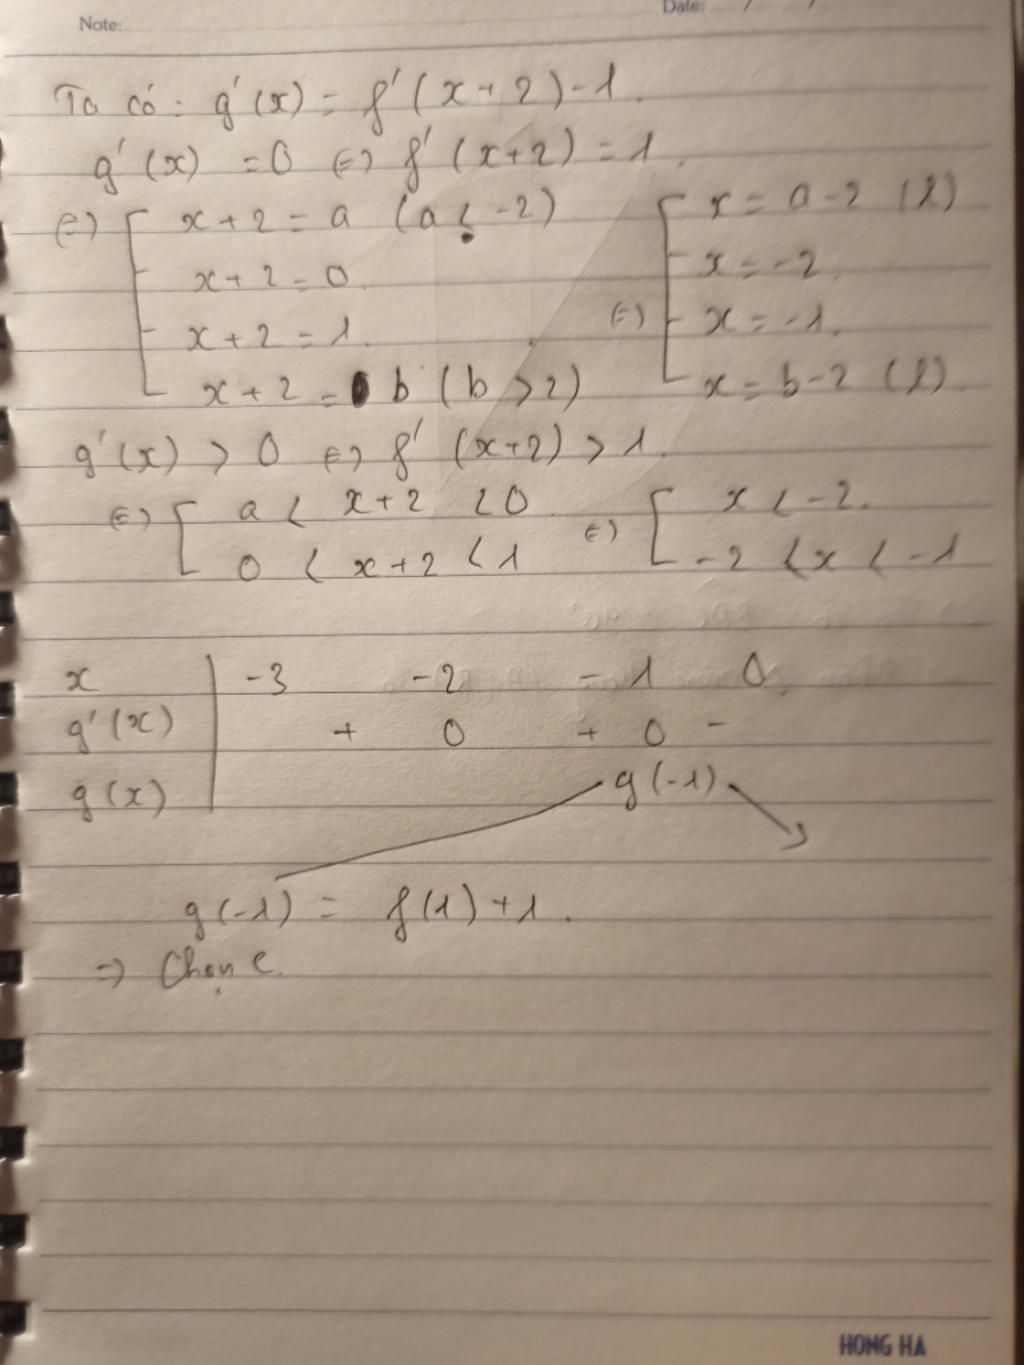 Note:
Date: / /
Ta có: g'(x) = f'(x+2)-1.
g'(x) = 0 (=) f'(x+2) = 1.
(=) [ x+2 = a (a < -2)
x+2 = 0.
x+2 = 1.
x+2 = b (b > 2)
(=) [ x = a-2 (l)
x = -2.
x = -1.
x = b-2 (l).
g'(x) > 0 (=) f'(x+2) > 1.
(=) [ a < x+2 < 0.
0 < x+2 < 1
(=) [ x < -2.
-2 < x < -1
x | -3 -2 -1 0.
g'(x) | + 0 + 0 -
g(x) | g(-1)
g(-1) = f(1)+1.
=> Chọn C.
HONG HA